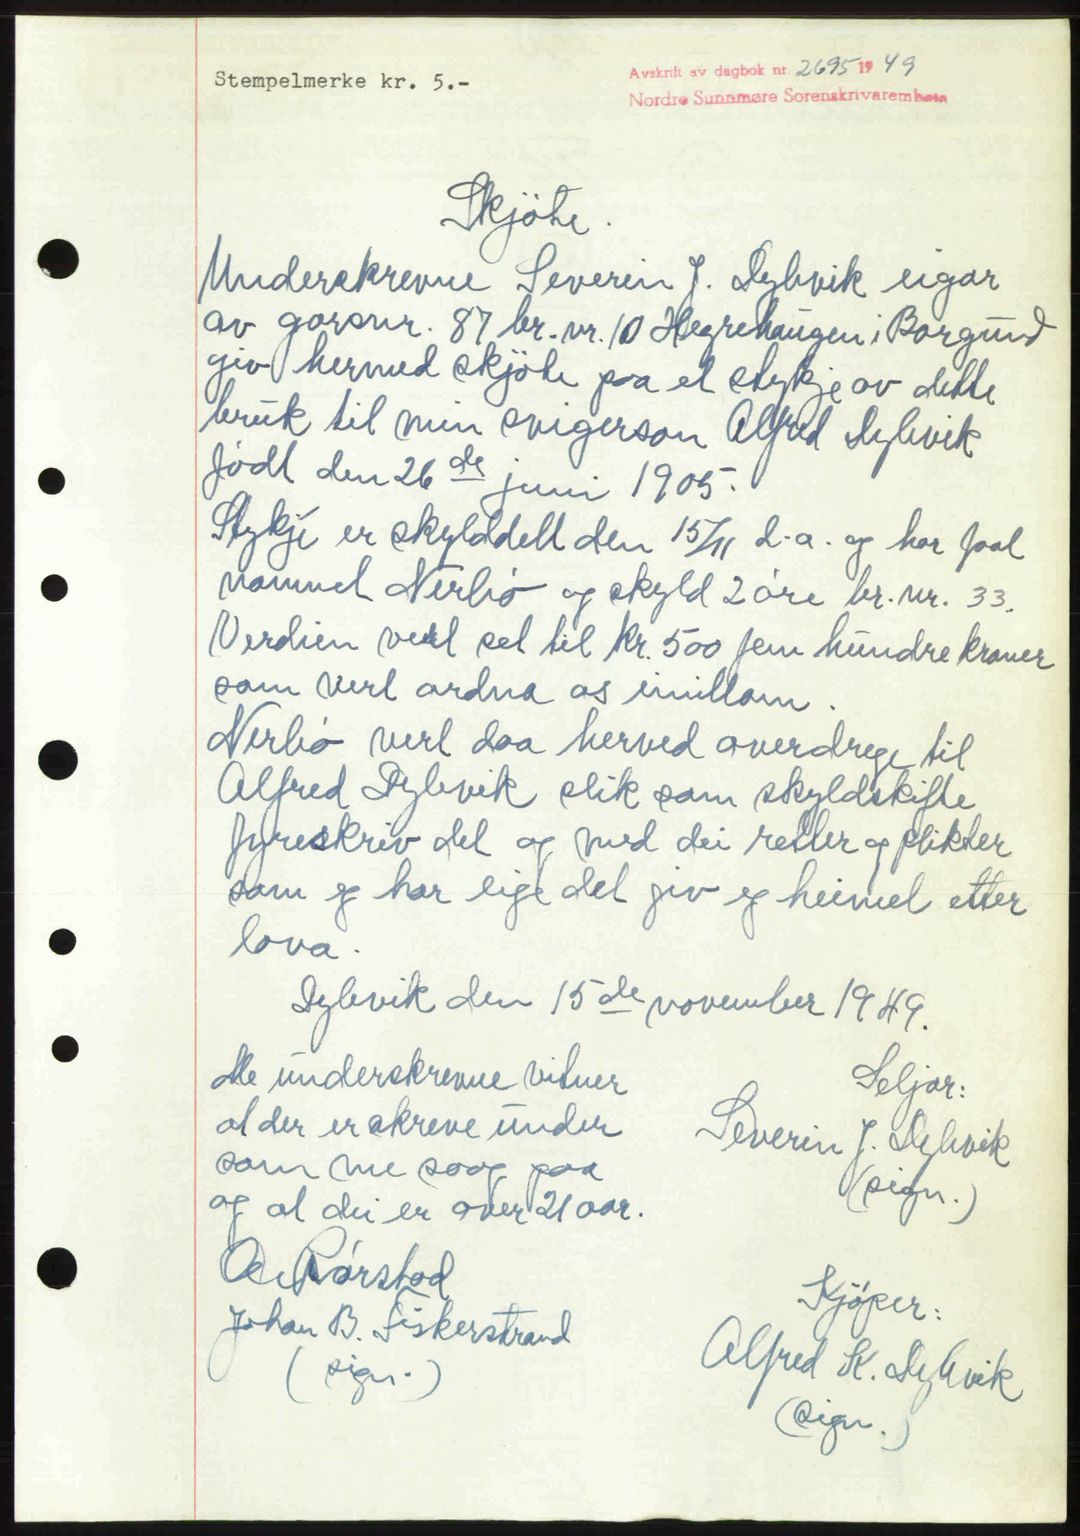 Stempelmerke kr. 5.-
Avskrift av dagbok nr. 2695 1949
Nordre Sunnmøre Sorenskrivarembete
Skjöte.
Underskrevne Severin J. Dybvik eigar
av garsnr. 87 br. nr. 10 Hegrehaugen i Borgund
giv hermed skjöte paa et stykje av dette
bruk til min svigerson Alfred Dybvik
födt den 26de juni 1905.
Stykje er skylddelt den 15/11 d.a. og har faat
namnet Nerbö og skyld 2 öre br. nr. 33.
Verdien vert set til kr. 500 fem hundre kroner
som vert ordna os imillom.
Nerbö vert daa herved overdrege til
Alfred Dybvik slik som skyldskifte
fyreskriv det og med dei retter og plikter
som eg har eige det giv eg heimel etter
lova.
Dybvik den 15de november 1949.
De underskrevne vitner
at der er skreve under
som me saag paa
og at dei er over 21 aar.
Seljar:
Severin J. Dybvik
(sign.)
Rörstad
Johan B. Fiskerstrand
(sign.)
Kjöper:
Alfred K. Dybvik
(sign.)